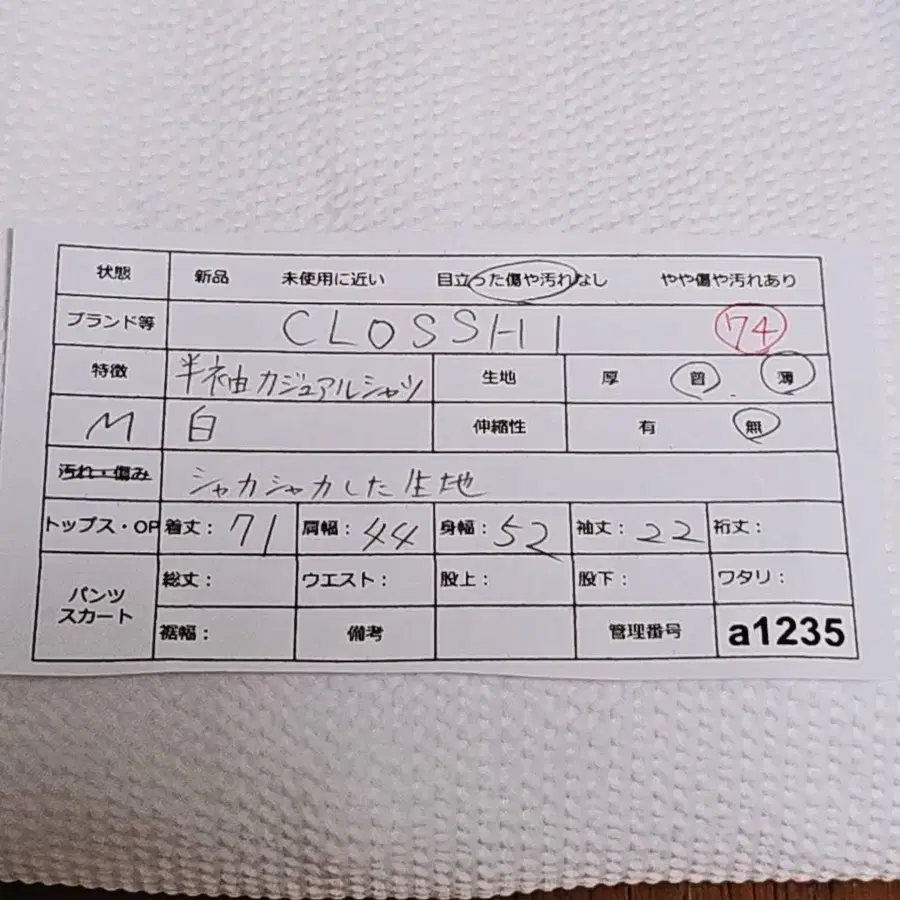 状態 新品 未使用に近い 目立った傷や汚れなし やや傷や汚れあり
ブランド等 CLOSSHI 74
特徴 半袖カジュアルシャツ 生地 厚 普 薄
M 白 伸縮性 有 無
汚れ・傷み シャカシャカした生地
トップス・OP 着丈: 71 肩幅: 44 身幅: 52 袖丈: 22 裄丈:
パンツ スカート 総丈: ウエスト: 股上: 股下: ワタリ:
裾幅: 備考 管理番号 a1235